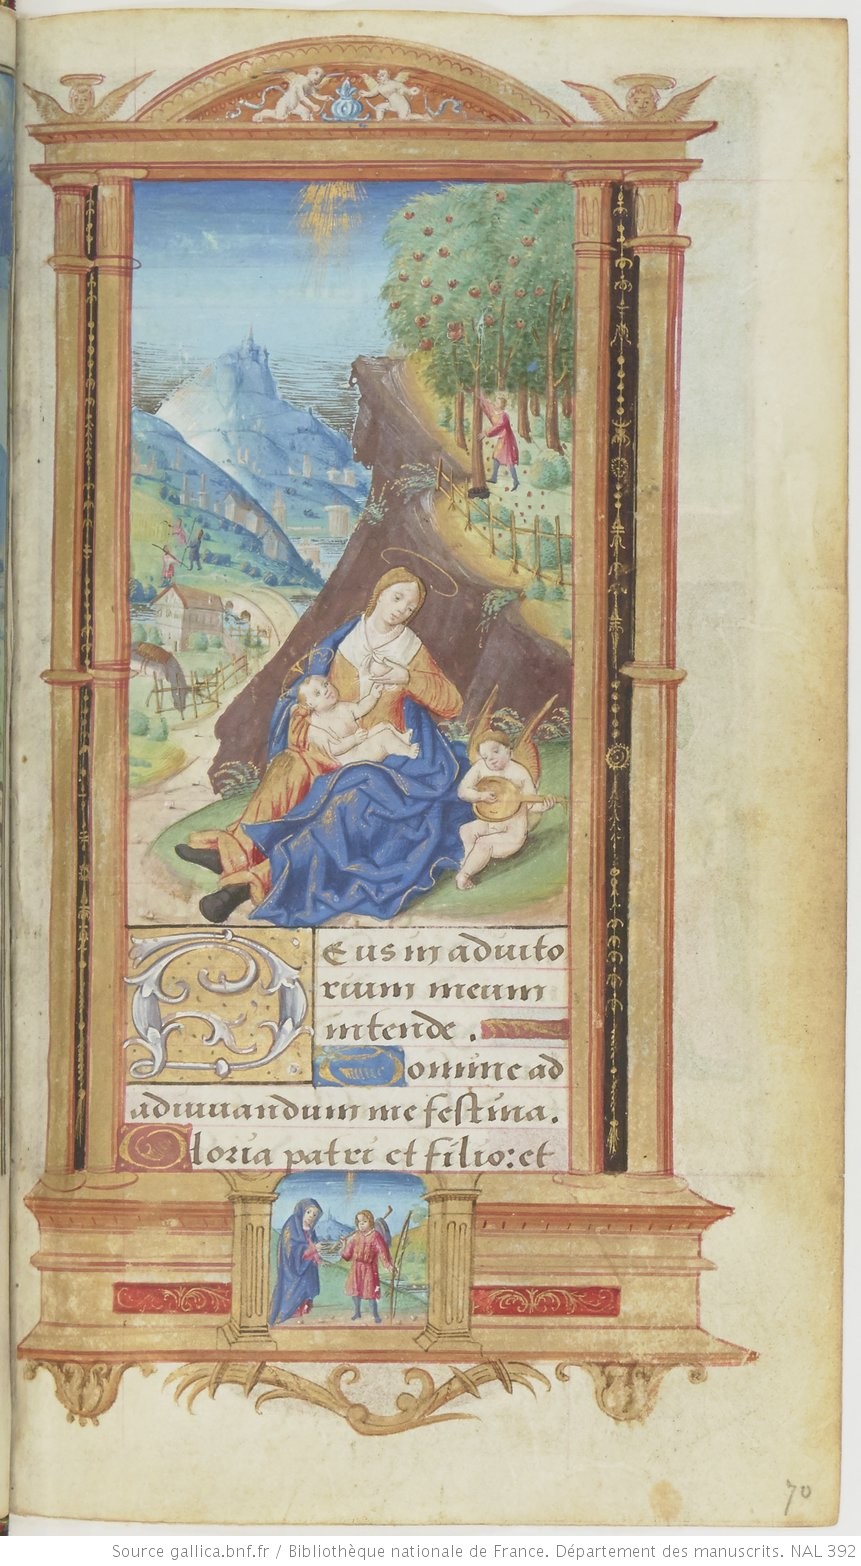 Deus in adiuto
rium meum
intende.
Domine ad
adiuuandum me festina.
Gloria patri et filio: et
70
Source gallica.bnf.fr / Bibliothèque nationale de France. Département des manuscrits. NAL 392